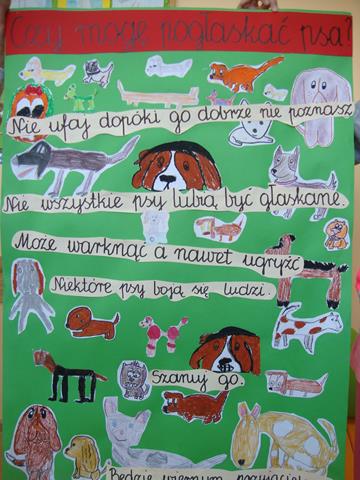 Czy mogę pogłaskać psa?
Nie ufaj dopóki go dobrze nie poznasz
Nie wszystkie psy lubią być głaskane.
Może warknąć a nawet ugryźć
Niektóre psy boją się ludzi.
Szanuj go.
Będzie wiernym